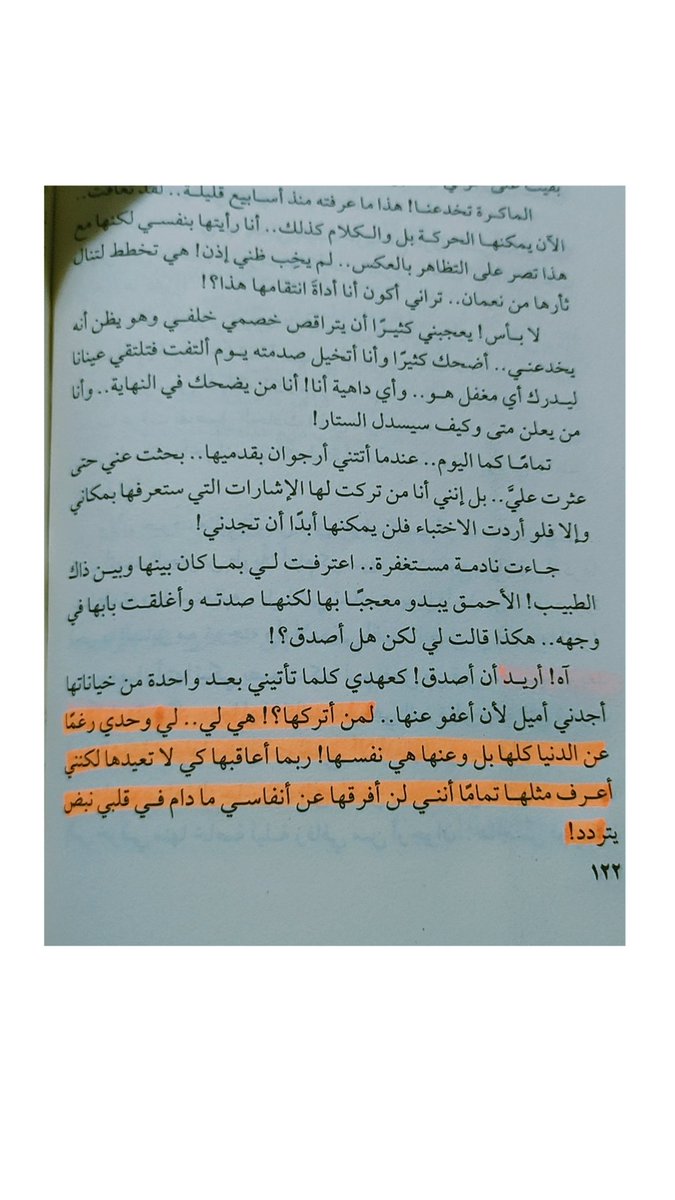 الماكرة تخدعنا! هذا ما عرفته منذ أسابيع قليلة.. لقد تعافت..
الآن يمكنها الحركة بل والكلام كذلك.. أنا رأيتها بنفسي لكنها مع
هذا تصر على التظاهر بالعكس.. لم يخِب ظني إذن! هي تخطط لتنال
ثأرها من نعمان.. تراني أكون أنا أداةَ انتقامها هذا؟!
لا بأس! يعجبني كثيرًا أن يتراقص خصمي خلفي وهو يظن أنه
يخدعني.. أضحك كثيرًا وأنا أتخيل صدمته يوم ألتفت فتلتقي عينانا
ليدرك أي مغفل هو.. وأي داهية أنا! أنا من يضحك في النهاية.. وأنا
من يعلن متى وكيف سيسدل الستار!
تمامًا كما اليوم.. عندما أتتني أرجوان بقدميها.. بحثت عني حتى
عثرت عليَّ.. بل إنني أنا من تركت لها الإشارات التي ستعرفها بمكاني
وإلا فلو أردت الاختباء فلن يمكنها أبدًا أن تجدني!
جاءت نادمة مستغفرة.. اعترفت لي بما كان بينها وبين ذاك
الطبيب! الأحمق يبدو معجبًا بها لكنها صدته وأغلقت بابها في
وجهه.. هكذا قالت لي لكن هل أصدق؟!
آه! أريد أن أصدق! كعهدي كلما تأتيني بعد واحدة من خياناتها
أجدني أميل لأن أعفو عنها.. لمن أتركها؟! هي لي.. لي وحدي رغمًا
عن الدنيا كلها بل وعنها هي نفسها! ربما أعاقبها كي لا تعيدها لكنني
أعرف مثلها تمامًا أنني لن أفرقها عن أنفاسي ما دام في قلبي نبض
يتردد!
١٢٢